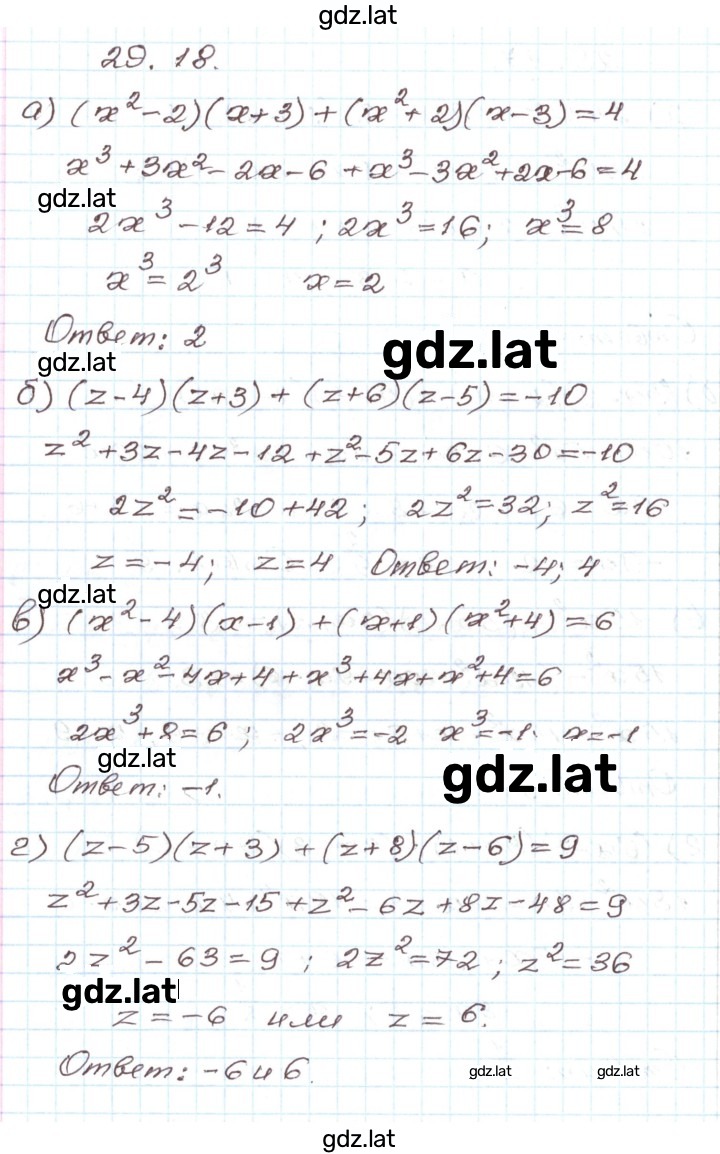 gdz.lat
29. 18.
а) (x²-2)(x+3)+(x²+2)(x-3)=4
x³+3x²-2x-6+x³-3x²+2x-6=4
gdz.lat
2x³-12=4 ; 2x³=16; x³=8
x³=2³ x=2
Ответ: 2
gdz.lat
gdz.lat
б) (z-4)(z+3)+(z+6)(z-5)=-10
z²+3z-4z-12+z²-5z+6z-30=-10
2z²=-10+42; 2z²=32; z²=16
z=-4; z=4 Ответ: -4; 4
gdz.lat
в) (x²-4)(x-1)+(x+1)(x²+4)=6
x³-x²-4x+4+x³+4x+x²+4=6
2x³+8=6 ; 2x³=-2 x³=-1. x=-1
gdz.lat
gdz.lat
Ответ: -1.
г) (z-5)(z+3)+(z+8)(z-6)=9
z²+3z-5z-15+z²-6z+8z-48=9
2z²-63=9 ; 2z²=72 ; z²=36
gdz.lat
z=-6 или z=6.
Ответ: -6 и 6.
gdz.lat gdz.lat
gdz.lat